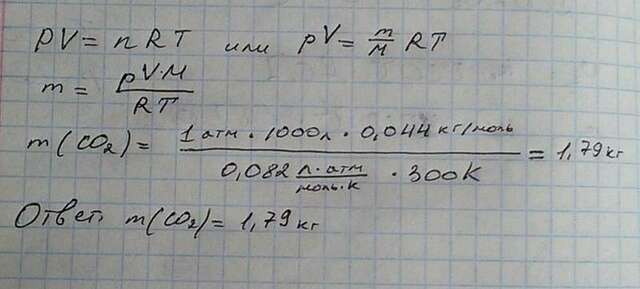 PV = nRT или pV = m/M RT
m = pV·M / RT
m(CO₂) = 1 атм · 1000л · 0,044 кг/моль / 0,082 л·атм/моль·К · 300К = 1,79 кг
Ответ: m(CO₂) = 1,79 кг